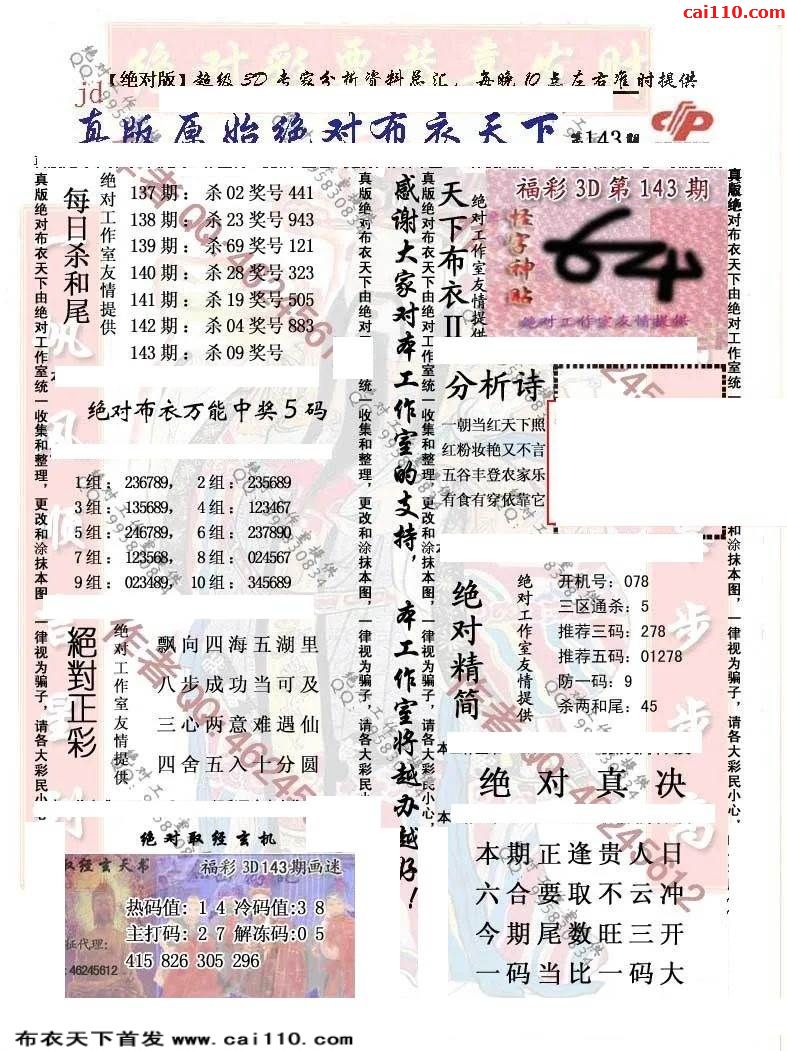 cai110.com
【绝对版】超级3D专家分析资料总汇，每晚10点左右准时提供
jd
真版原始绝对布衣天下
第143期
真版绝对布衣天下由绝对工作室统一收集和整理，更改和涂抹本图，一律视为骗子，请各大彩民小心，
每日杀和尾
绝对工作室友情提供
137期：杀02奖号441
138期：杀23奖号943
139期：杀69奖号121
140期：杀28奖号323
141期：杀19奖号505
142期：杀04奖号883
143期：杀09奖号
绝对布衣万能中奖5码
1组：236789， 2组：235689
3组：135689， 4组：123467
5组：246789， 6组：237890
7组：123568， 8组：024567
9组：023489， 10组：345689
絕對正彩
绝对工作室友情提供
飘向四海五湖里
八步成功当可及
三心两意难遇仙
四舍五入十分圆
绝对取经玄机
取经玄天书
福彩3D143期画迷
热码值：1 4 冷码值:3 8
主打码：2 7 解冻码:0 5
415 826 305 296
征代理：
46245612
真版绝对布衣天下由绝对工作室统一收集和整理，更改和涂抹本图，一律视为骗子，请各大彩民小心，
感谢大家对本工作室的支持，本工作室将越办越好！
真版绝对布衣天下由绝对工作室统一收集和整理，更改和涂抹本图，一律视为骗子，请各大彩民小心，
天下布衣II
绝对工作室友情提供
福彩3D第143期
怪字神贴
绝对工作室友情提供
分析诗
一朝当红天下照
红粉妆艳又不言
五谷丰登农家乐
有食有穿依靠它
绝对精简
绝对工作室友情提供
开机号：078
三区通杀：5
推荐三码：278
推荐五码：01278
防一码：9
杀两和尾：45
绝对真决
本期正逢贵人日
六合要取不云冲
今期尾数旺三开
一码当比一码大
真版绝对布衣天下由绝对工作室统一收集和整理，更改和涂抹本图，一律视为骗子，请各大彩民小心，
作者QQ 46245612
布衣天下首发 www.cai110.com